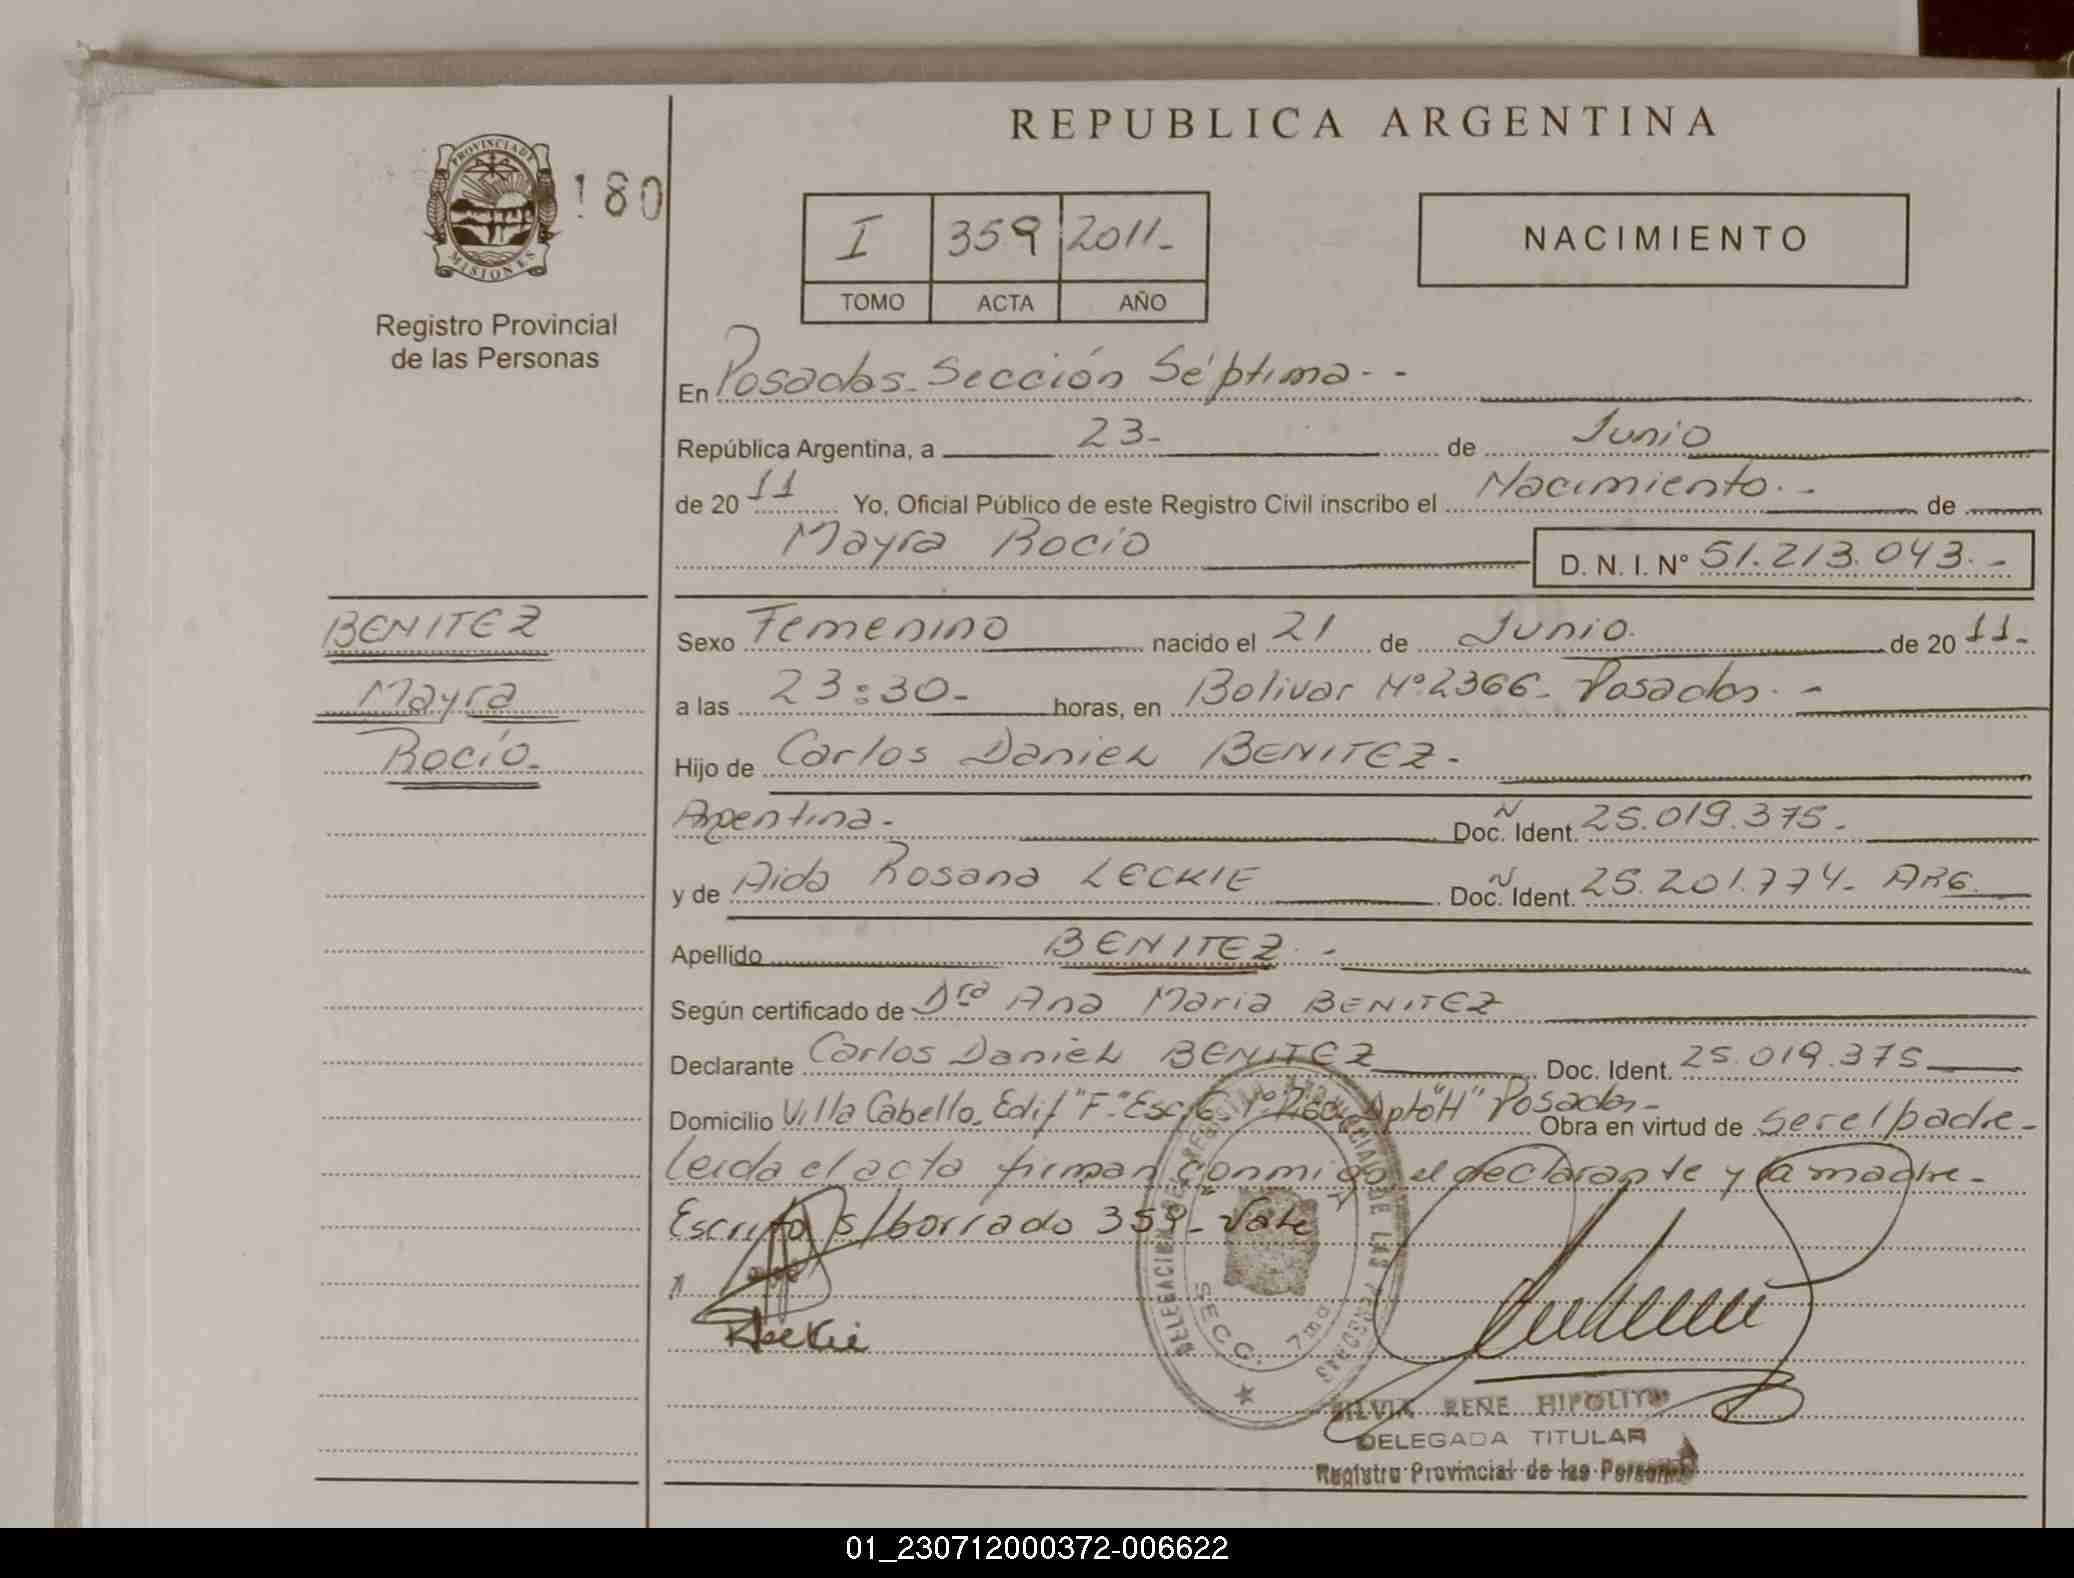 REPUBLICA ARGENTINA
PROVINCIA DE
MISIONES
180
Registro Provincial
de las Personas
I 359 2011.-
TOMO ACTA AÑO
NACIMIENTO
En Posadas- Sección Séptima - -
República Argentina, a 23- de Junio
de 20 11 Yo, Oficial Público de este Registro Civil inscribo el Nacimiento.- de
Mayra Rocío D. N. I. Nº 51.213.043.-
BENITEZ
Mayra
Rocío.-
Sexo Femenino nacido el 21 de Junio. de 20 11-
a las 23:30- horas, en Bolivar Nº 2366- Posadas.-
Hijo de Carlos Daniel BENITEZ-
Argentina- Doc. Ident. 25.019.375-
y de Aida Rosana LECKIE Doc. Ident. 25.201.774- ARG.
Apellido BENITEZ.-
Según certificado de Dra Ana Maria BENITEZ
Declarante Carlos Daniel BENITEZ Doc. Ident. 25.019.375
Domicilio Villa Cabello- Edif "F" Esc. 6 1º Dpto "H" Posadas- Obra en virtud de ser el padre-
Leida el acta firman conmigo el declarante y la madre-
Escrito s/borrado 359- Vale
Leckie
DELEGACION DEL REGISTRO PROVINCIAL DE LAS PERSONAS
SECC. 7ma
SILVIA RENE HIPOLITO
DELEGADA TITULAR
Registro Provincial de las Personas
01_230712000372-006622